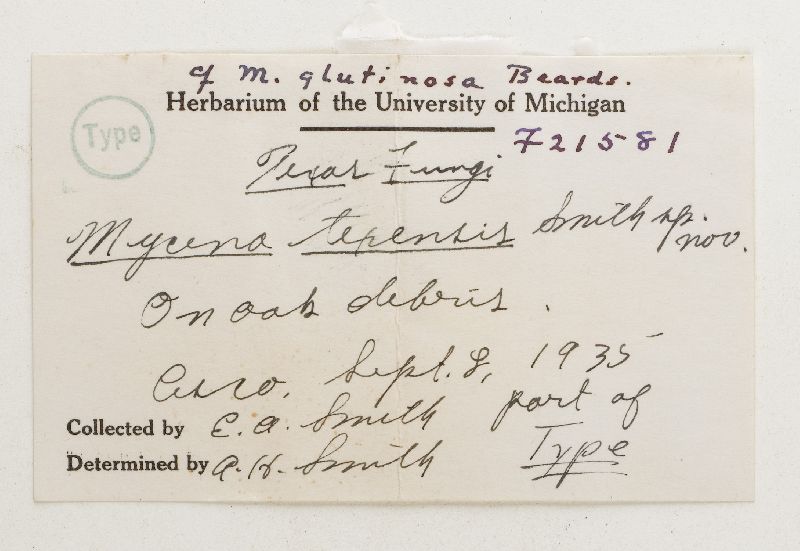 cf M. glutinosa Beards.
Herbarium of the University of Michigan
Type
721581
Texas Fungi
Mycena texensis Smith sp. nov.
On oak debris.
Cisco. Sept. 8, 1935
Collected by E. A. Smith
part of Type
Determined by A. H. Smith